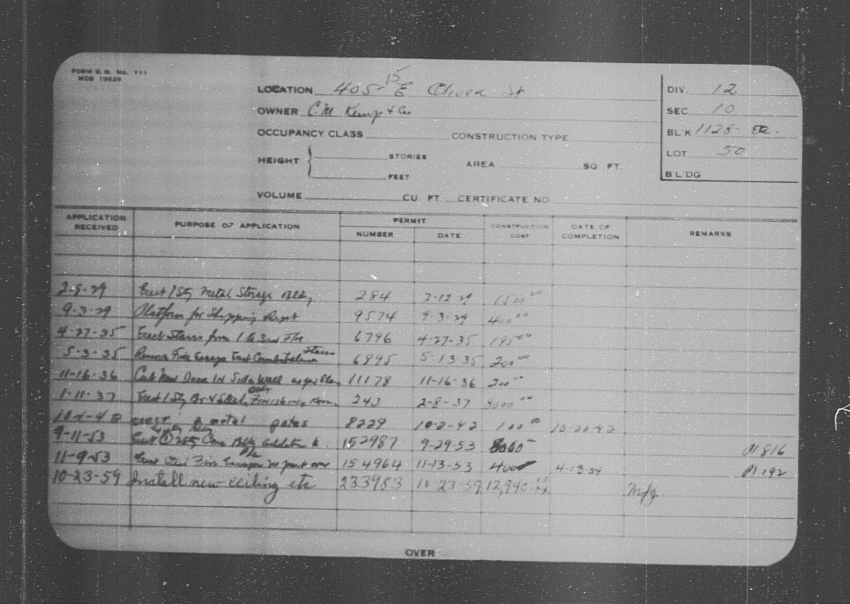 FORM B. B. No. 111
LOCATION 405-15 E Oliver St
DIV. 12
OWNER C M Kemp & Co
SEC 10
OCCUPANCY CLASS CONSTRUCTION TYPE
BL'K 1128
HEIGHT STORIES FEET AREA SQ FT.
LOT 50
B'L'DG
VOLUME CU. FT. CERTIFICATE NO
APPLICATION RECEIVED PURPOSE OF APPLICATION PERMIT NUMBER DATE CONSTRUCTION COST DATE OF COMPLETION REMARKS
2-8-29 Erect 1 Sty Metal Storage Bldg 284 2-12-29 1500 00
9-3-29 Platform for Shipping 9574 9-3-29 400 00
4-27-35 Erect Stairs from 1 to 3rd Flr 6796 4-27-35 195 00
5-3-35 Remove Fire Escape Erect Stairs 6895 5-13-35 200 00
11-16-36 Cut New Door in Side Wall as per Plan 11178 11-16-36 200 00
1-11-37 Erect 1 Sty Br & Steel Bldg Finishing Room 243 2-8-37 3000 00
10-1-42 erect metal gates 8229 10-2-42 100 00 10-20-42
9-11-53 Erect 2 Sty Bldg Addition 152987 9-29-53 8000 P1 816
11-9-53 Fire Escape 154964 11-13-53 400 4-13-54 P1 192
10-23-59 Install new ceiling etc 233953 10-23-59 12,940 Mfg.
OVER